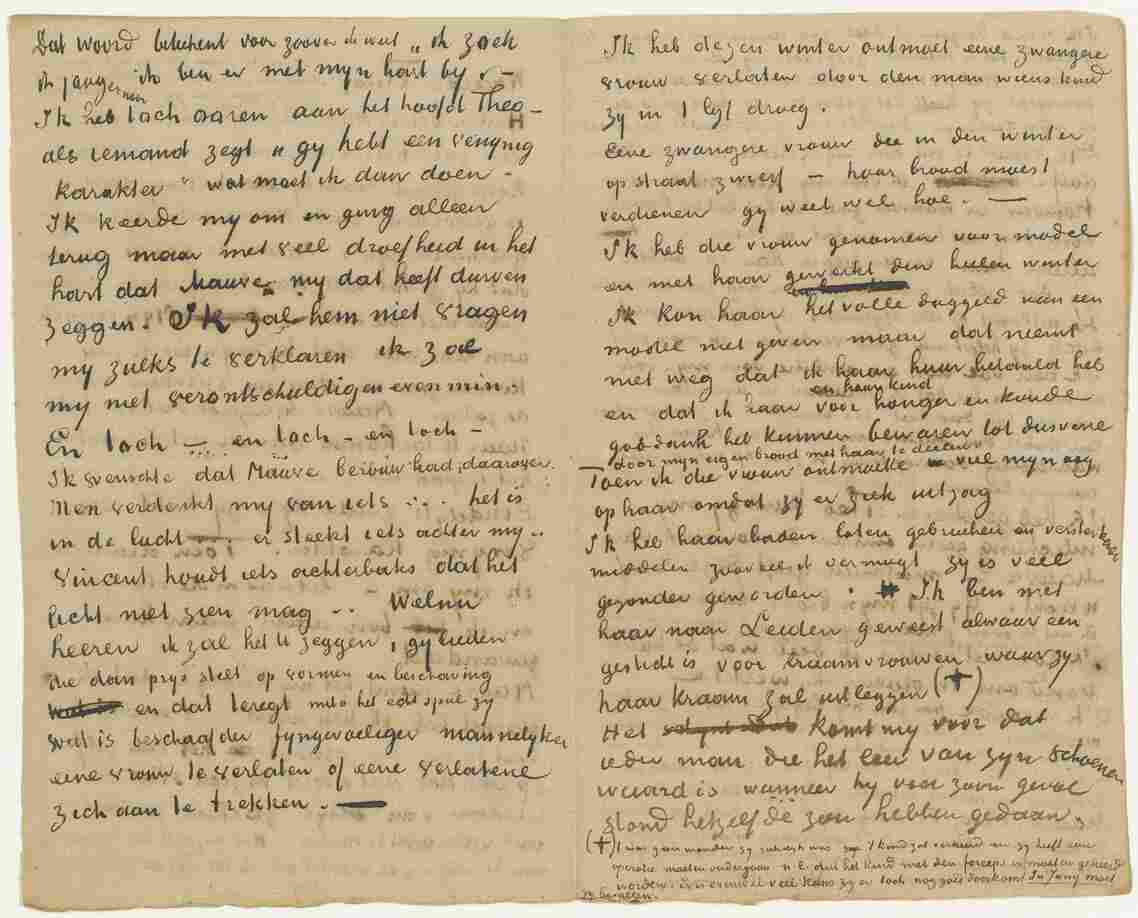 Dat woord beteekent voor zoover ik weet „ik zoek
ik jaag er naar ik ben er met myn hart by. –
Ik heb toch aaren aan het hoofd Theo –
als iemand zegt „gy hebt een venynig
karakter” wat moet ik dan doen –
Ik keerde my om en ging alleen
terug maar met veel droefheid in het
hart dat Mauve my dat heeft durven
zeggen. Ik zal hem niet vragen
my zulks te verklaren ik zal
my niet verontschuldigen evenmin.
En toch – .. en toch – en toch –
Ik wenschte dat Mauve berouw had daarover.
Men verdenkt my van iets ... het is
in de lucht – er steekt iets achter my ..
Vincent houdt iets achterbaks dat het
licht niet zien mag ... Welnu
heeren ik zal het U zeggen, gylieden
die dan prys stelt op vormen en beschaving
en dat teregt mits het echt spul zy
wat is beschaafder fyngevoeliger mannelyker
eene vrouw te verlaten of eene verlatene
zich aan te trekken. —
Ik heb dezen winter ontmoet eene zwangere
vrouw verlaten door den man wiens kind
zy in 't lyf droeg.
Eene zwangere vrouw die in den winter
op straat zwierf – haar brood moest
verdienen gy weet wel hoe. —
Ik heb die vrouw genomen voor model
en met haar gewerkt den heelen winter
Ik kon haar het volle daggeld van een
model niet geven maar dat neemt
niet weg dat ik haar huur betaald heb
en dat ik haar en haar kind voor honger en koude
goddank heb kunnen bewaren tot dusverre
door myn eigen brood met haar te deelen
– Toen ik die vrouw ontmoette viel myn oog
op haar omdat zy er ziek uitzag
Ik heb haar baden laten gebruiken en versterkende
middelen zooveel ik vermogt zy is veel
gezonder geworden. Ik ben met
haar naar Leiden geweest alwaar een
gesticht is voor kraamvrouwen waar zy
haar kraam zal uitleggen (+)
Het komt my voor dat
ieder man die het leer van zyn schoenen
waard is wanneer hy voor zoon geval
stond hetzelfde zou hebben gedaan.
(+) 't Was geen wonder zy sukkelde was, 't kind zat verkeerd en zy heeft eene
operatie moeten ondergaan n.l. dat het kind met den forceps is moeten gekeerd
worden. er is evenwel veel kans zy er toch nog goed doorkomt. In Juny moet
zy bevallen.